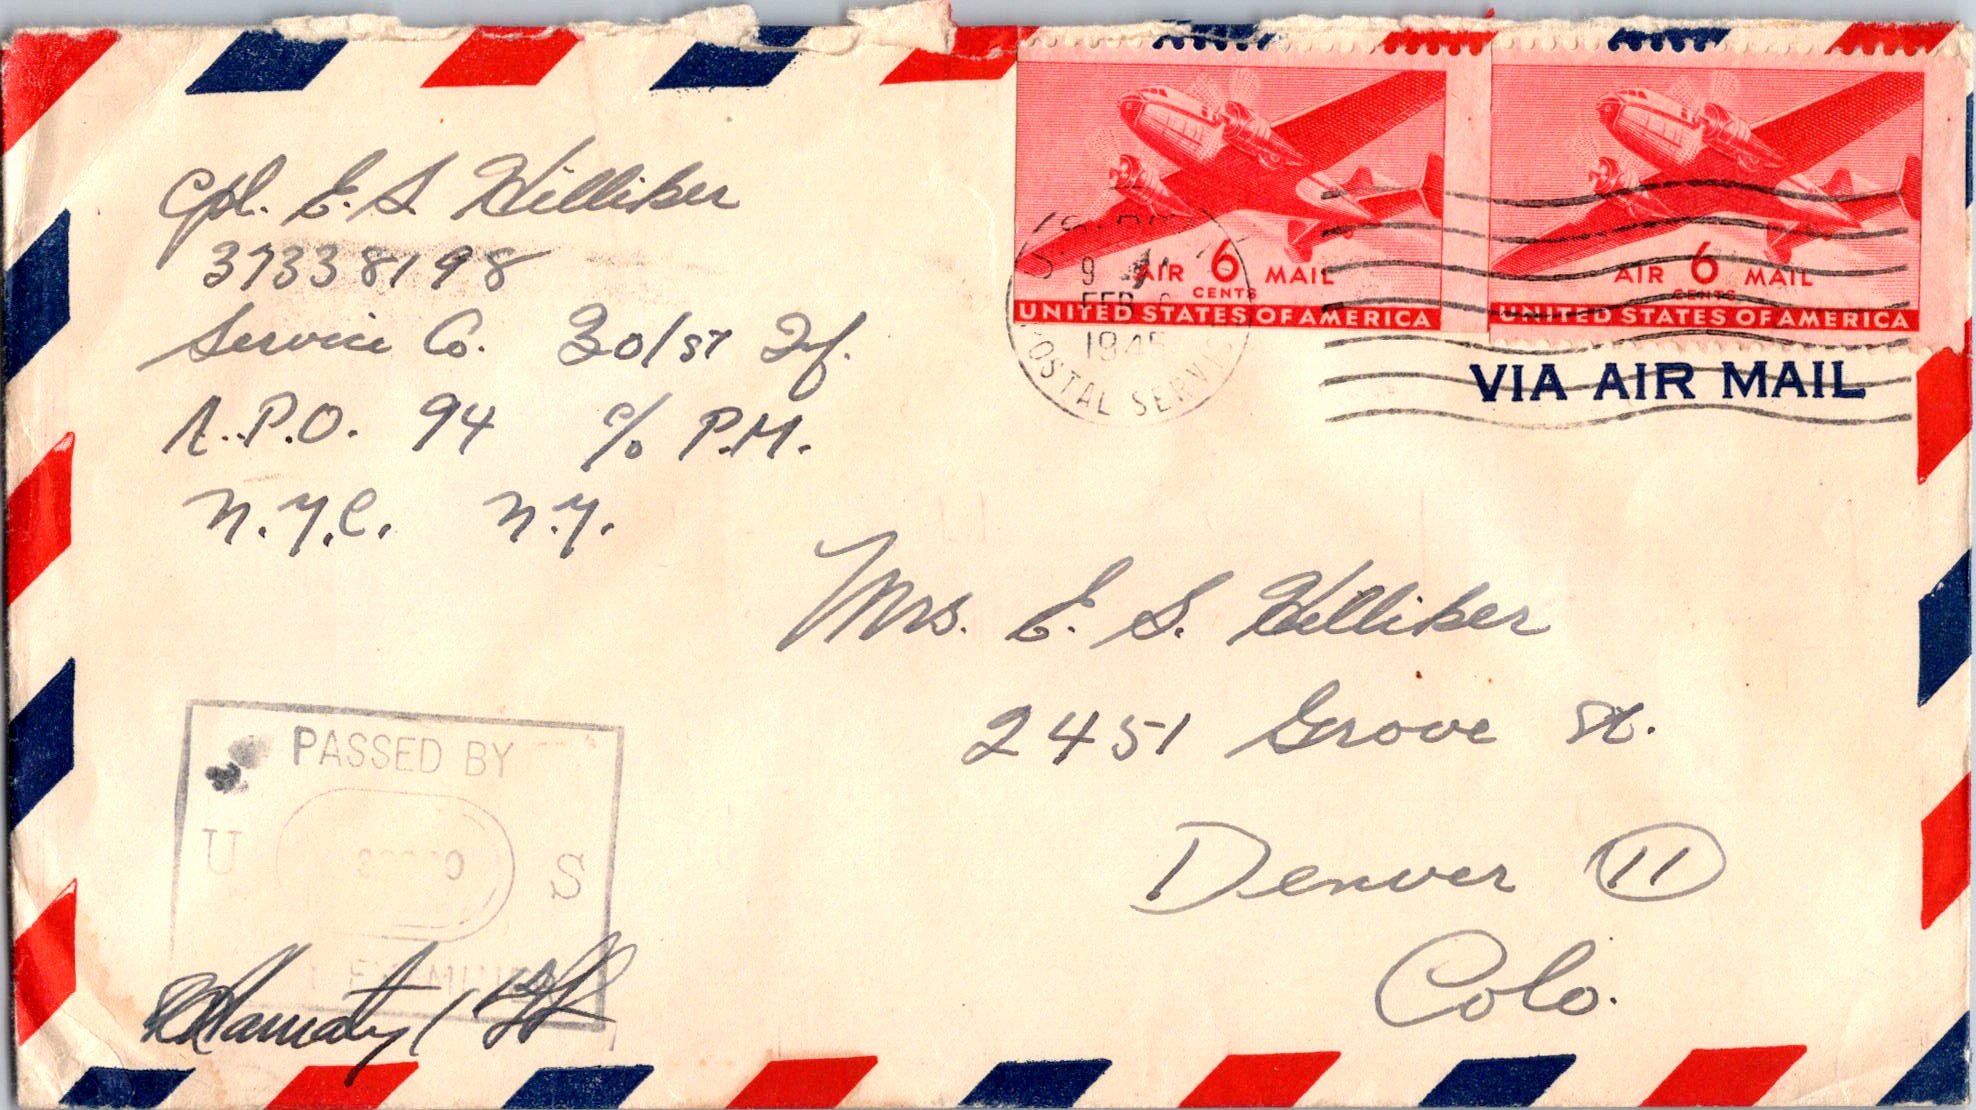 Cpl. E. S. Hilliker
37338198
Service Co. 301st Inf.
A.P.O. 94 c/o P.M.
N.Y.C. N.Y.
AIR 6 MAIL
CENTS
UNITED STATES OF AMERICA
AIR 6 MAIL
CENTS
UNITED STATES OF AMERICA
9
FEB
1945
POSTAL SERVICE
VIA AIR MAIL
Mrs. E. S. Hilliker
2451 Grove St.
Denver 11
Colo.
PASSED BY
U S